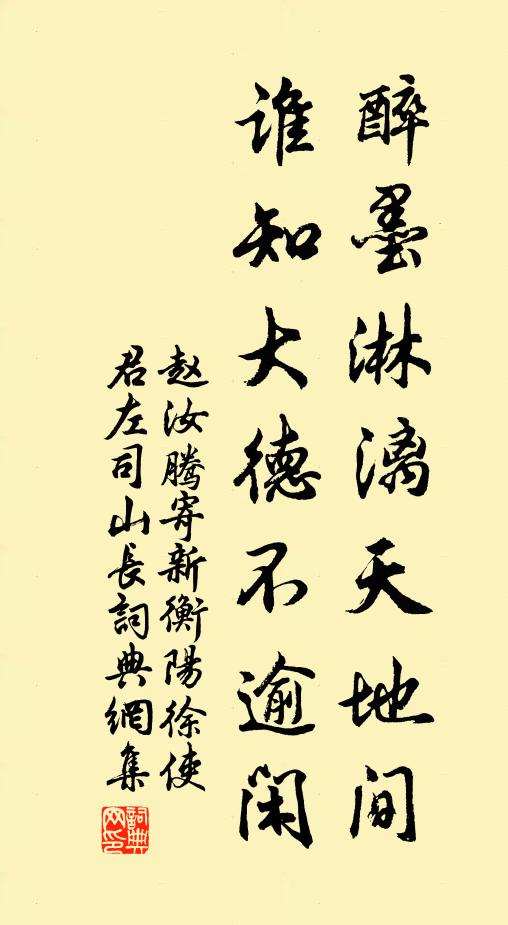 醉墨淋漓天地间
谁知大德不逾闲
赵汝腾寄新衡陽徐使
君左司山長詞典網集
詞典网印